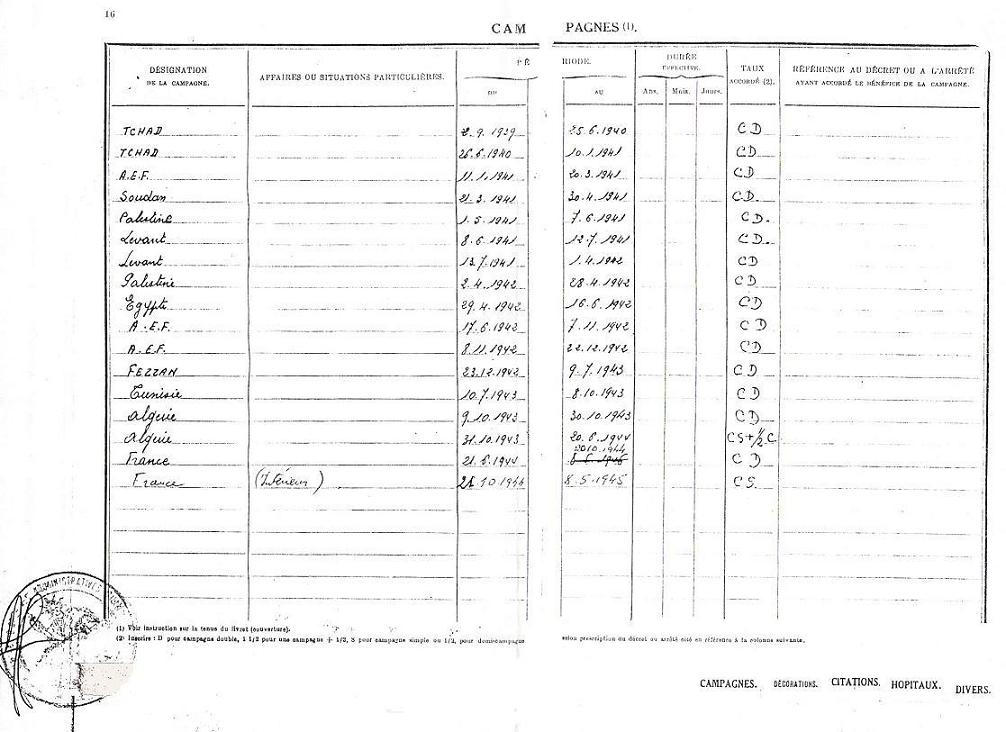 16
CAMPAGNES (1).
DÉSIGNATION DE LA CAMPAGNE. AFFAIRES OU SITUATIONS PARTICULIÈRES. PÉRIODE. DURÉE EFFECTIVE. TAUX ACCORDÉ (2). RÉFÉRENCE AU DÉCRET OU A L'ARRÊTÉ AYANT ACCORDÉ LE BÉNÉFICE DE LA CAMPAGNE.
DU AU Ans. Mois. Jours.
TCHAD 2.9.1939 25.6.1940 CD
TCHAD 26.6.1940 10.1.1941 CD
A.E.F. 11.1.1941 20.3.1941 CD
Soudan 21.3.1941 30.4.1941 CD.
Palestine 1.5.1941 7.6.1941 CD.
Levant 8.6.1941 12.7.1941 CD.
Levant 13.7.1941 1.4.1942 CD
Palestine 2.4.1942 28.4.1942 CD
Egypte 29.4.1942 16.6.1942 CD
A.E.F. 17.6.1942 7.11.1942 CD
A.E.F. 8.11.1942 22.12.1942 CD
FEZZAN 23.12.1942 9.7.1943 CD
Tunisie 10.7.1943 8.10.1943 CD
Algérie 9.10.1943 30.10.1943 CD
Algérie 31.10.1943 20.6.1944 CS+1/2C
20.10.1944
France 21.6.1944 CD
France (Intérieur) 21.10.1944 8.5.1945 CS
(1) Voir instruction sur la tenue du livret (couverture).
(2) Inscrire : D pour campagne double, 1 1/2 pour une campagne + 1/2, S pour campagne simple ou 1/2, pour demi-campagne selon prescription du décret ou arrêté cité en référence à la colonne suivante.
CAMPAGNES. DÉCORATIONS. CITATIONS. HOPITAUX. DIVERS.